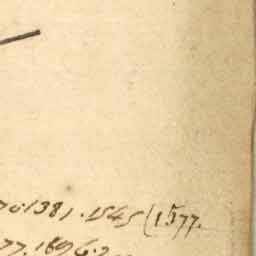 70.1381.1545(1577.
77.1896.2